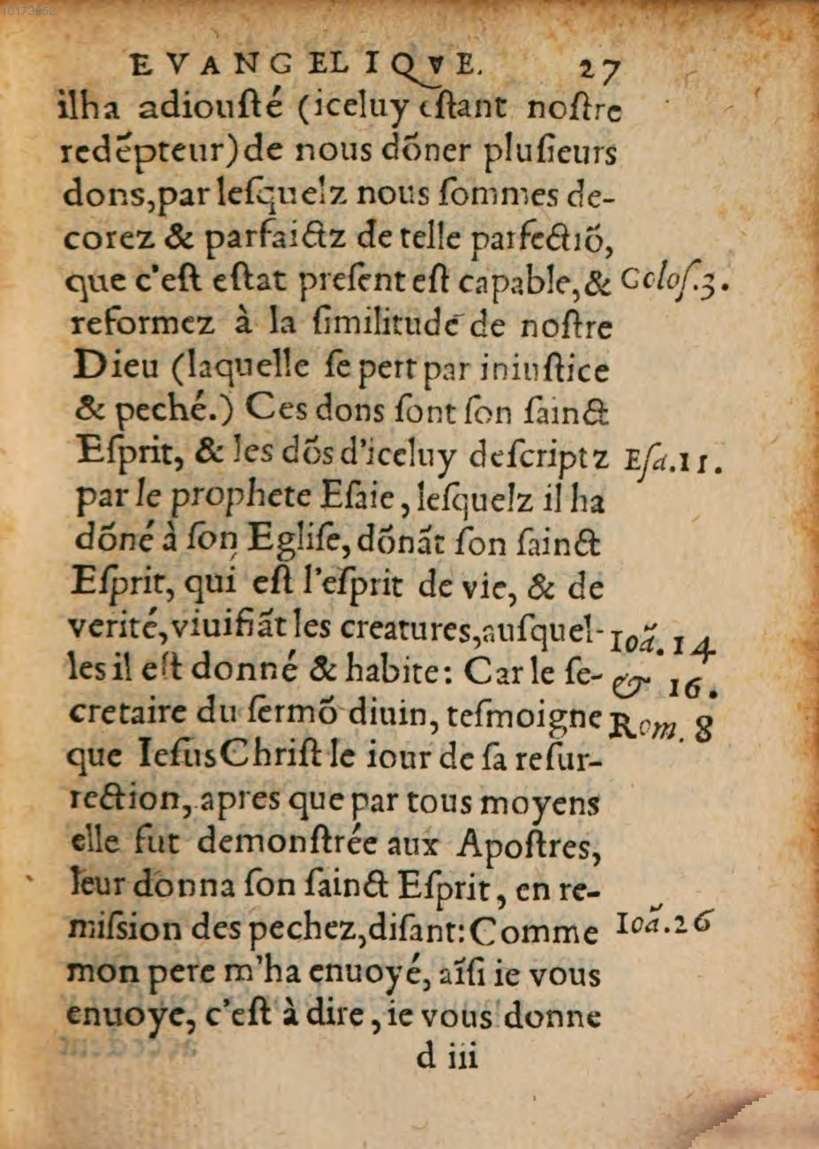 EVANGELIQVE. 27
ilha adiousté (iceluy estant nostre
redẽpteur) de nous dõner plusieurs
dons, par lesquelz nous sommes de-
corez & parfaictz de telle parfectiõ,
que c'est estat present est capable, & Colos.3.
reformez à la similitude de nostre
Dieu (laquelle se pert par iniustice
& peché.) Ces dons sont son sainct
Esprit, & les dõs d'iceluy descriptz Esa.11.
par le prophete Esaie, lesquelz il ha
dõné à son Eglise, dõnãt son sainct
Esprit, qui est l'esprit de vie, & de
verité, viuifiãt les creatures, ausquel- Ioã. 14
les il est donné & habite: Car le se- & 16.
cretaire du sermõ diuin, tesmoigne Rom. 8
que Iesus Christ le iour de sa resur-
rection, apres que par tous moyens
elle fut demonstrée aux Apostres,
leur donna son sainct Esprit, en re-
mission des pechez, disant: Comme Ioã.26
mon pere m'ha enuoyé, aĩsi ie vous
enuoye, c'est à dire, ie vous donne
d iii